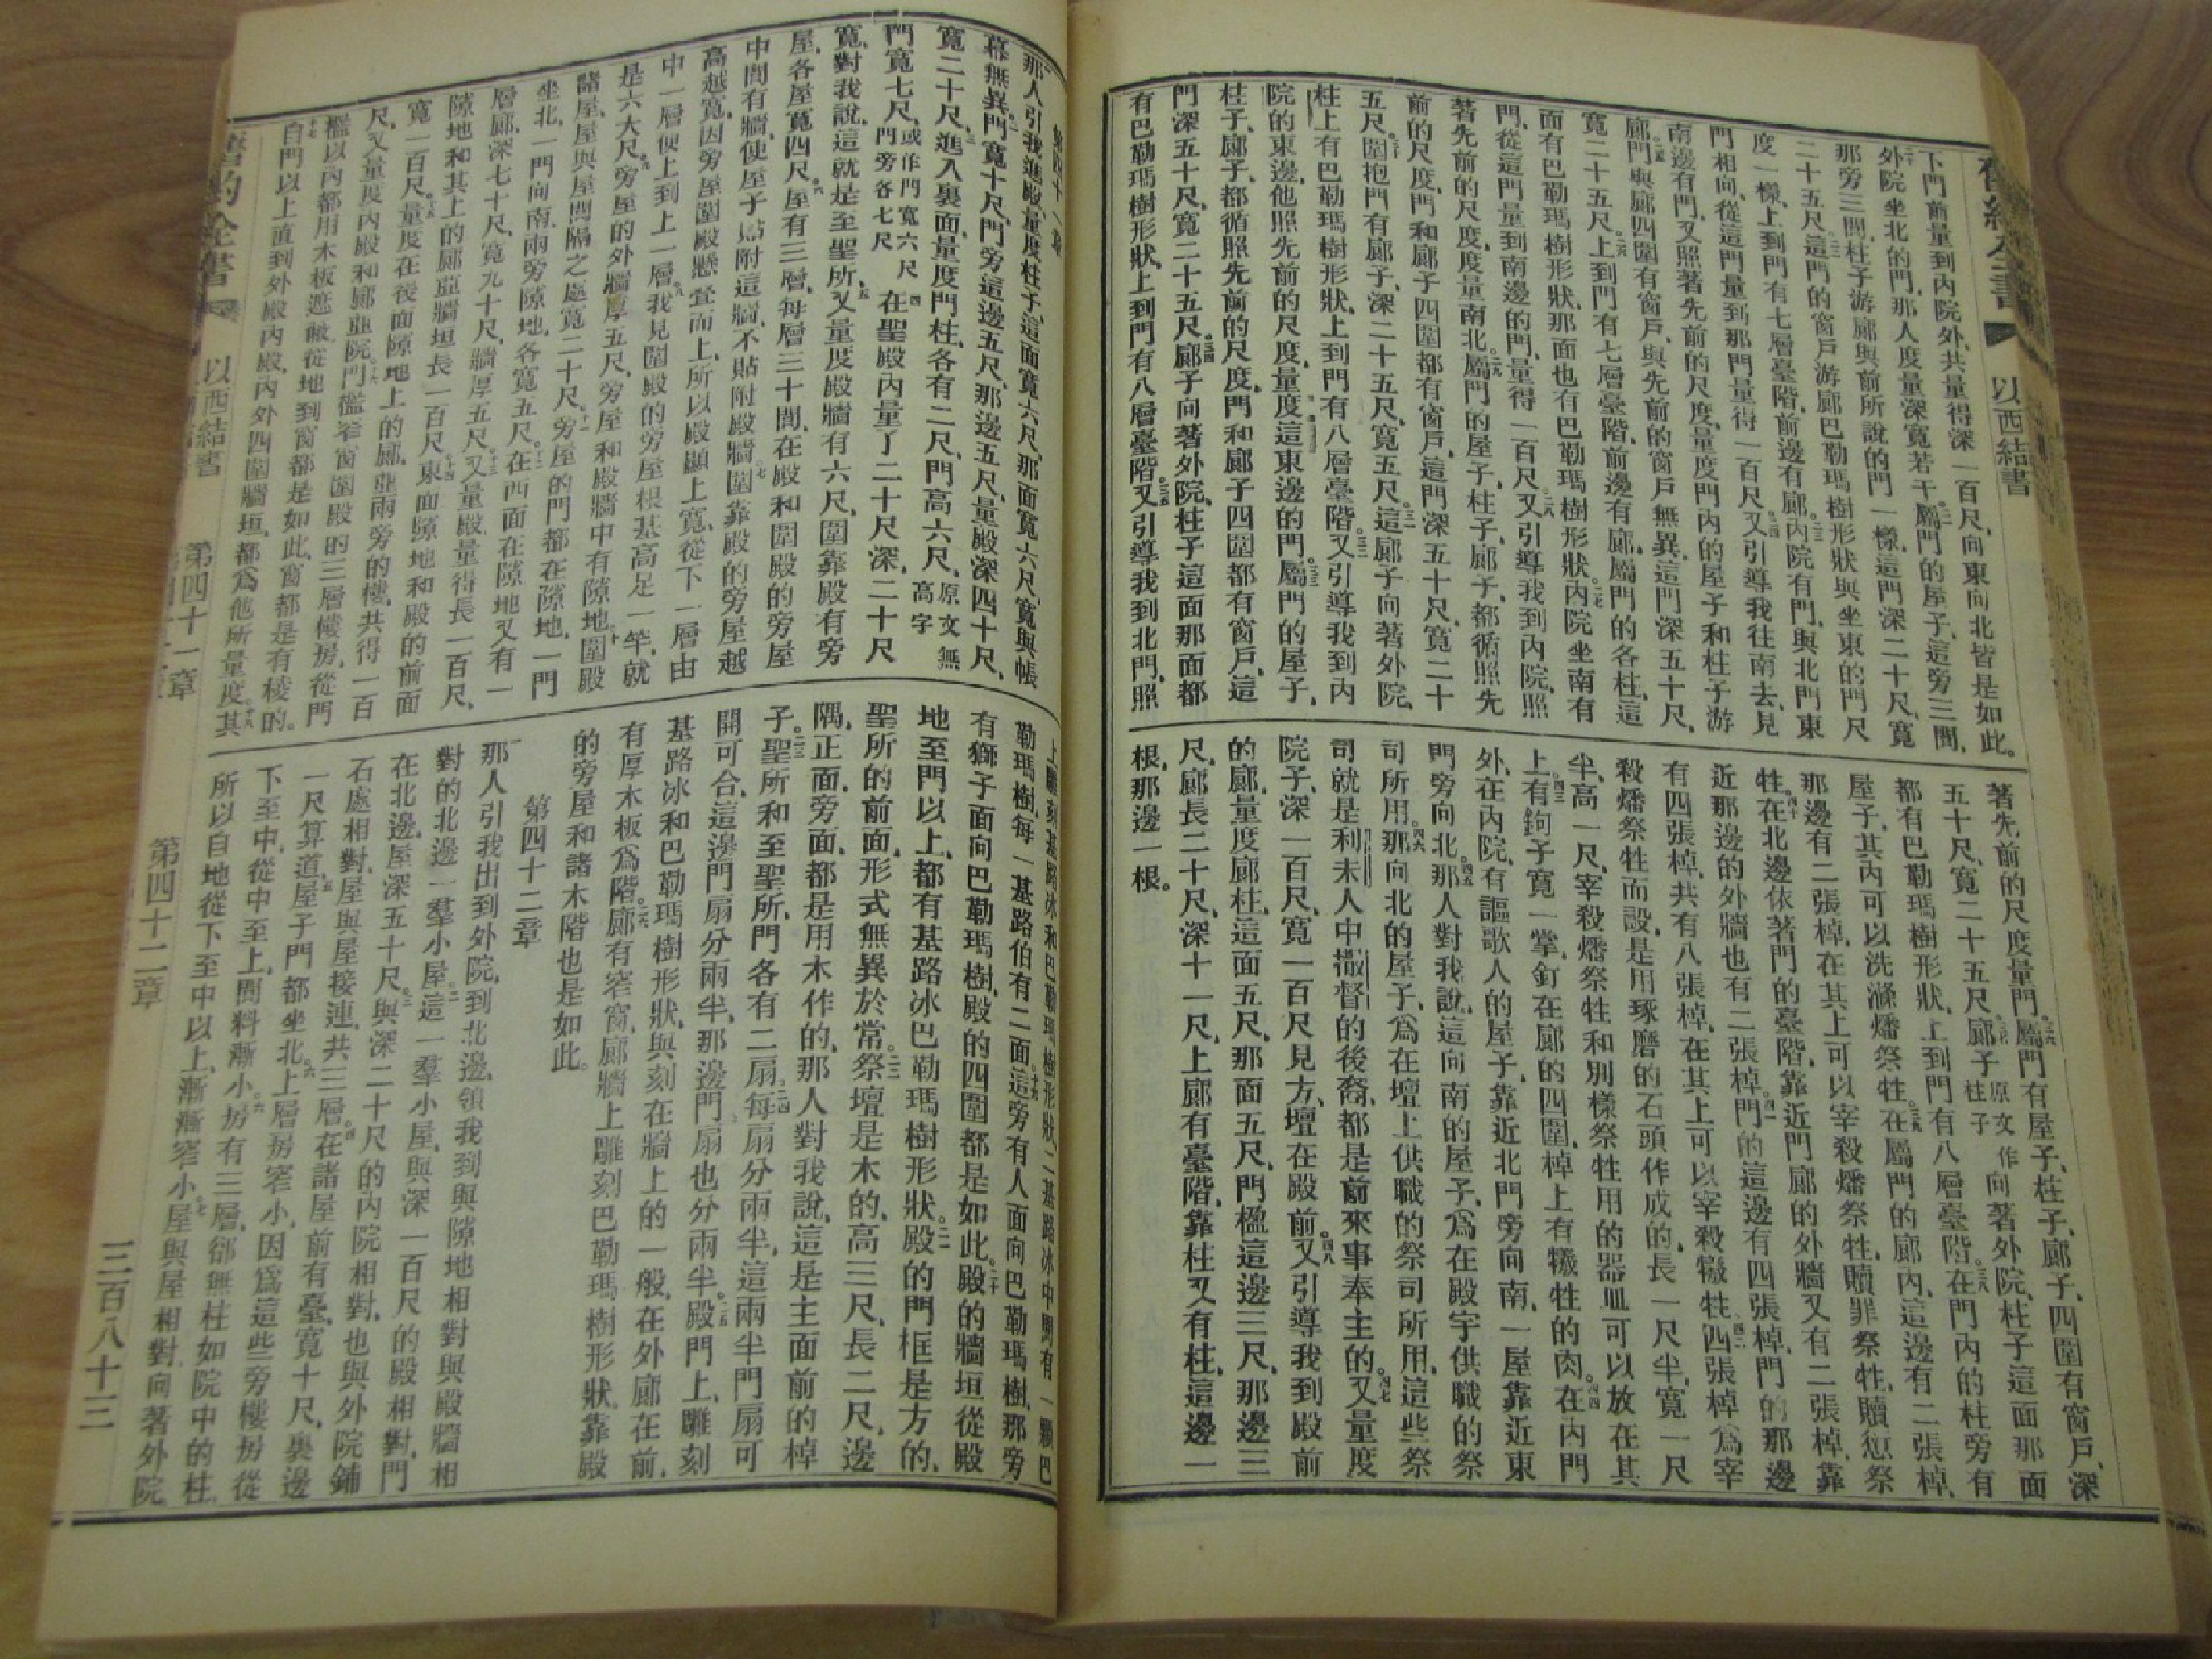 以西結書
下門前量到內院外、共量得深一百尺、向東向北皆是如此。
外院坐北的門、那人度量深寬若干。屬門的屋子、這旁三間、
那旁三間、柱子游廊與前所說的門一樣、這門深二十尺、寬
二十五尺。這門的窗戶游廊巴勒瑪樹形狀與坐東的門尺
度一樣、上到門有七層臺階、前邊有廊。內院有門、與北門東
門相向、從這門量到那門量得一百尺。又引導我往南去、見
南邊有門、又照著先前的尺度、量度門內的屋子和柱子游
廊。門與廊四圍有窗戶、與先前的窗戶無異、這門深五十尺、
寬二十五尺。上到門有七層臺階、前邊有廊、屬門的各柱、這
面有巴勒瑪樹形狀、那面也有巴勒瑪樹形狀。內院坐南有
門、從這門量到南邊的門、量得一百尺。又引導我到內院、照
著先前的尺度、度量南北。屬門的屋子、柱子、廊子、都循照先
前的尺度、門和廊子四圍都有窗戶、這門深五十尺、寬二十
五尺。圍抱門有廊子、深二十五尺、寬五尺。這廊子向著外院、
柱上有巴勒瑪樹形狀、上到門有八層臺階。又引導我到內
院的東邊、他照先前的尺度、量度這東邊的門。屬門的屋子、
柱子、廊子、都循照先前的尺度、門和廊子四圍都有窗戶、這
門深五十尺、寬二十五尺。廊子向著外院、柱子這面那面都
有巴勒瑪樹形狀、上到門有八層臺階。又引導我到北門、照
著先前的尺度量門。屬門有屋子、柱子、廊子、四圍有窗戶、深
五十尺、寬二十五尺。廊子原文作柱子向著外院、柱子這面那面
都有巴勒瑪樹形狀、上到門有八層臺階。在門內的柱旁有
屋子、其內可以洗滌燔祭牲。在屬門的廊內、這邊有二張棹、
那邊有二張棹、在其上可以宰殺燔祭牲、贖罪祭牲、贖愆祭
牲。在北邊依著門的臺階、靠近門廊的外牆又有二張棹、靠
近那邊的外牆也有二張棹。門的這邊有四張棹、門的那邊
有四張棹、共有八張棹、在其上可以宰殺犧牲。四張棹為宰
殺燔祭牲而設、是用琢磨的石頭作成的、長一尺半、寬一尺
半、高一尺、宰殺燔祭牲和別樣祭牲用的器皿可以放在其
上。有鉤子寬一掌、釘在廊的四圍、棹上有犧牲的肉。在內門
外、在內院、有謳歌人的屋子、靠近北門旁向南、一屋靠近東
門旁向北。那人對我說、這向南的屋子、爲在殿宇供職的祭
司所用。那向北的屋子、爲在壇上供職的祭司所用、這些祭
司就是利未人中撒督的後裔、都是前來事奉主的。又量度
院子、深一百尺、寬一百尺見方、壇在殿前。又引導我到殿前
的廊、量度廊柱、這面五尺、那面五尺、門楹這邊三尺、那邊三
尺、廊長二十尺、深十一尺、上廊有臺階、靠柱又有柱、這邊一
根、那邊一根。
那人引我進殿、量度柱子、這面寬六尺、那面寬六尺、寬與帳
幕無異。門寬十尺、門旁這邊五尺、那邊五尺、量殿深四十尺、
寬二十尺。進入裏面、量度門柱、各有二尺、門高六尺、原文無高字
門寬七尺、或作門寬六尺門旁各七尺在聖殿內量了二十尺深、二十尺
寬、對我說、這就是至聖所。又量度殿牆有六尺、圍靠殿有旁
屋、各屋寬四尺。屋有三層、每層三十間、在殿和圍殿的旁屋
中間有牆、使屋子貼附這牆、不貼附殿牆。圍靠殿的旁屋越
高越寬、因旁屋圍殿懸疊而上、所以殿顯上寬、從下一層由
中一層便上到上一層。我見圍殿的旁屋根基高足一竿、就
是六大尺。旁屋的外牆厚五尺、旁屋和殿牆中有隙地。圍殿
諸屋、屋與屋間隔之處寬二十尺。旁屋的門都在隙地、一門
坐北、一門向南、兩旁隙地、各寬五尺。在西面在隙地又有一
層廊、深七十尺、寬九十尺、牆厚五尺。又量殿、量得長一百尺、
隙地和其上的廊並牆垣長一百尺。東面隙地和殿的前面
寬一百尺。量度在後面隙地上的廊、並兩旁的樓、共得一百
尺、又量度內殿和廊並院。門檻窄窗圍殿的三層樓房、從門
檻以內都用木板遮蔽、從地到窗都是如此、窗都是有棱的。
自門以上直到外殿內殿、內外四圍牆垣、都爲他所量度。其
上雕刻基路冰和巴勒瑪樹形狀、二基路冰中間有一顆巴
勒瑪樹、每一基路伯有二面。這旁有人面向巴勒瑪樹、那旁
有獅子面向巴勒瑪樹、殿的四圍都是如此。殿的牆垣從殿
地至門以上、都有基路冰巴勒瑪樹形狀。殿的門框是方的、
聖所的前面、形式無異於常。祭壇是木的、高三尺、長二尺、邊
隅、正面、旁面、都是用木作的、那人對我說、這是主面前的棹
子。聖所和至聖所、門各有二扇。每扇分兩半、這兩半門扇可
開可合、這邊門扇分兩半、那邊門扇也分兩半。殿門上、雕刻
基路冰和巴勒瑪樹形狀、與刻在牆上的一般、在外廊在前、
有厚木板爲階。廊有窄窗、廊牆上雕刻巴勒瑪樹形狀、靠殿
的旁屋和諸木階也是如此。
第四十二章
那人引我出到外院、到北邊、領我到與隙地相對與殿牆相
對的北邊一羣小屋。這一羣小屋、與深一百尺的殿相對、門
在北邊、屋深五十尺。與深二十尺的內院相對、也與外院鋪
石處相對、屋與屋接連、共三層。在諸屋前有臺、寬十尺、裏邊
一尺算道、屋子門都坐北。上層房窄小、因爲這些旁樓房從
下至中、從中至上、間料漸小。房有三層、卻無柱如院中的柱、
所以自地從下至中以上、漸漸窄小。屋與屋相對、向著外院、
聖約全書
以西結書
第四十一章
第四十二章
三百八十三